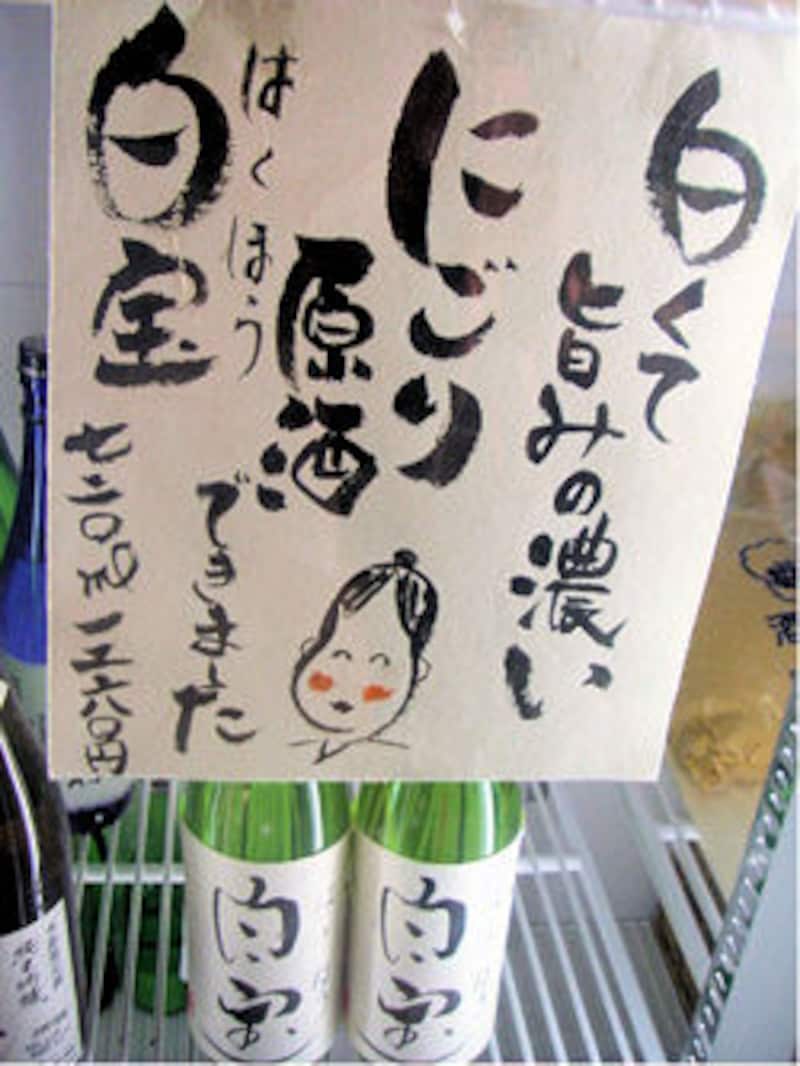 白くて
旨みの濃い
にごり
原酒
できました
はくほう
白宝
七二〇ml 一二六〇円
白宝
白宝